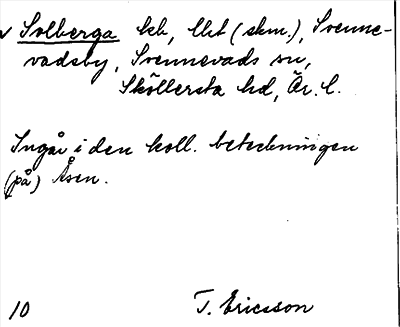 ✓ Solberga lht, llht (skm.), Svenne-
vadsby, Svennevads sn,
Sköllersta hd, Är. l.
Ingår i den koll. beteckningen
(på) Åsen.
10 T. Ericsson